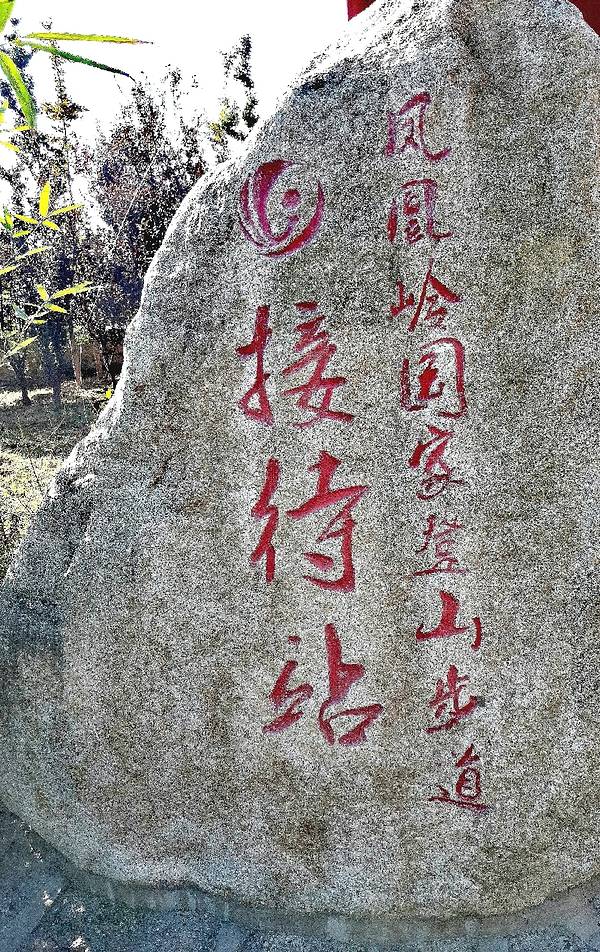 凤凰岭国家登山步道
接待站